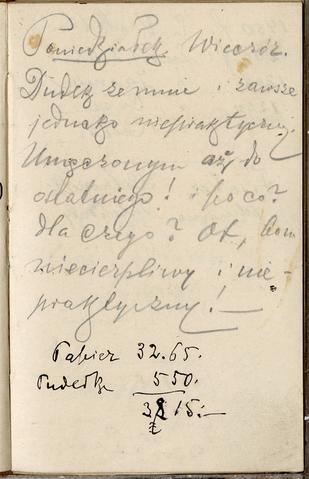 Poniedziałek Wieczór.
Dudek ze mnie i zawsze
jednako niepraktyczny.
Umęczonym aż, do
ostatniego! i po co?
dla czego? Ot, bom
niecierpliwy i nie-
praktyczny! —
Papier 32.65.
Pudełk 5 50.
38 15.—